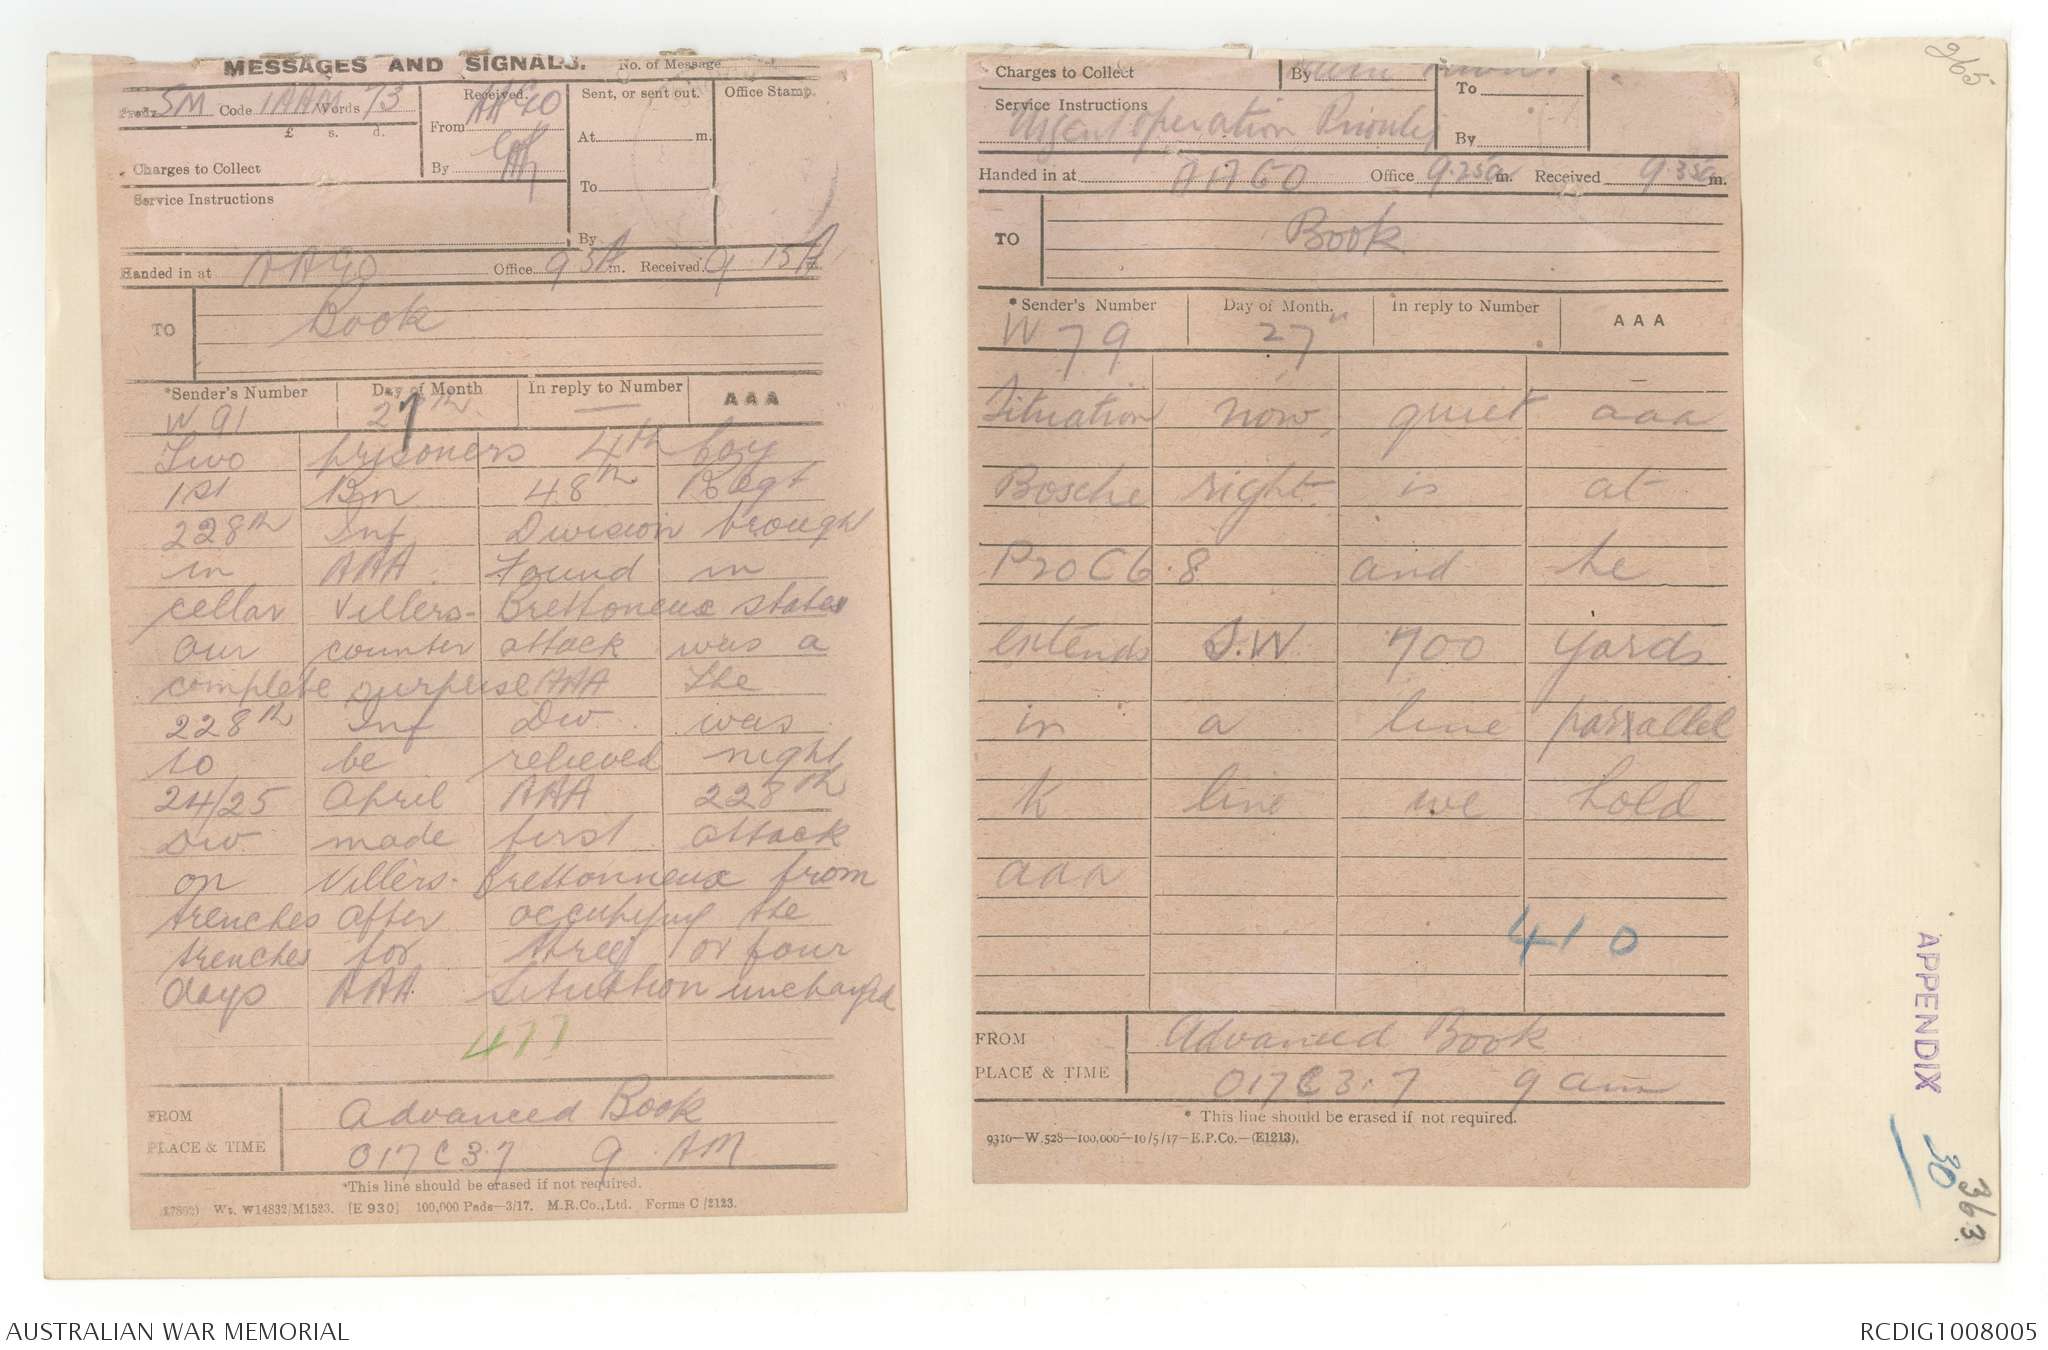 MESSAGES AND SIGNALS. No. of Message
Prefix SM Code 1AAM Words 73
£ s. d.
Charges to Collect
Service Instructions
Received.
From
By
Sent, or sent out.
At m.
To
By
Office Stamp.
Handed in at Office 9 5A m. Received 9 15A
TO Book
*Sender's Number Day of Month In reply to Number AAA
W 91 27th —
Two prisoners 4th Coy
1st Bn 48th Regt
228th Inf Division brought
in AAA Found in
cellar Villers-Brettoneux states
our counter attack was a
complete surprise AAA The
228th Inf Div was
to be relieved night
24/25 April AAA 228th
Div made first attack
on Villers-Brettonneux from
trenches after occupying the
trenches for three or four
days AAA Situation unchanged
477
FROM Advanced Book
PLACE & TIME O17C3.7 9 AM
*This line should be erased if not required.
Wt. W14832/M1523. [E 930] 100,000 Pads—3/17. M.R.Co.,Ltd. Forms C/2123.
Charges to Collect
Service Instructions
Urgent operation Priority
By
To
By
Handed in at AAGO Office 9.25a m. Received 9.35a m.
TO Book
*Sender's Number Day of Month. In reply to Number AAA
W 79 27th
Situation now quiet aaa
Bosche right is at
P20C6.8 and he
extends S.W 700 yards
in a line parallel
to line we hold
aaa
410
FROM Advanced Book
PLACE & TIME O17C3.7 9 am
* This line should be erased if not required.
9310—W 528—100,000—10/5/17—E.P.Co.—(E1213).
265
APPENDIX 30
363
AUSTRALIAN WAR MEMORIAL
RCDIG1008005